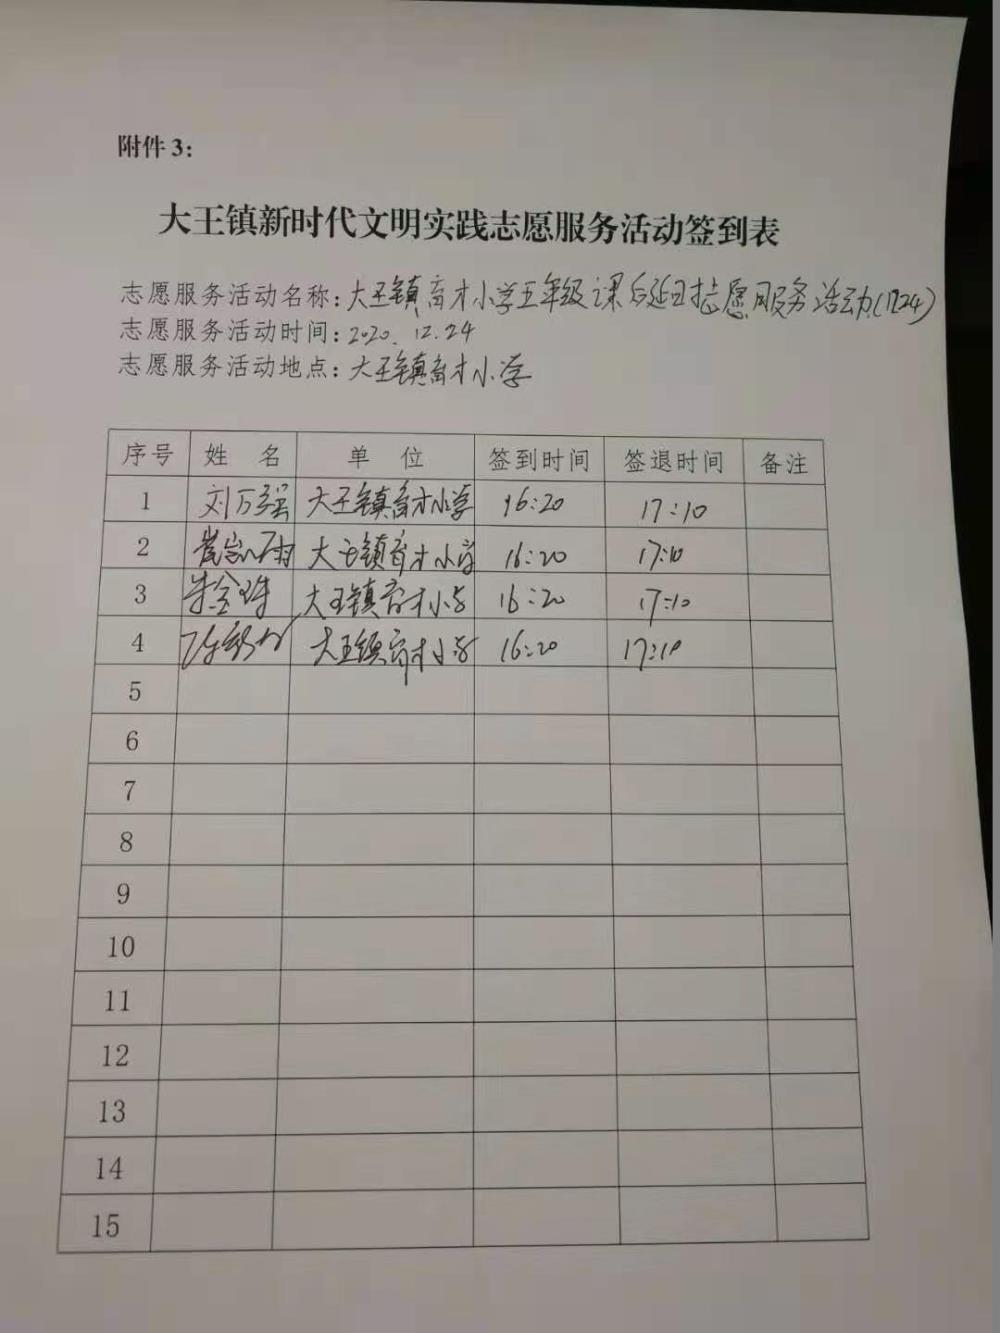 附件 3：
大王镇新时代文明实践志愿服务活动签到表
志愿服务活动名称：大王镇育才小学五年级课后延时志愿服务活动(1224)
志愿服务活动时间：2020.12.24
志愿服务活动地点：大王镇育才小学
序号 姓 名 单 位 签到时间 签退时间 备注
1 刘万强 大王镇育才小学 16:20 17:10
2 大王镇育才小学 16:20 17:10
3 朱金珠 大王镇育才小学 16:20 17:10
4 大王镇育才小学 16:20 17:10
5
6
7
8
9
10
11
12
13
14
15